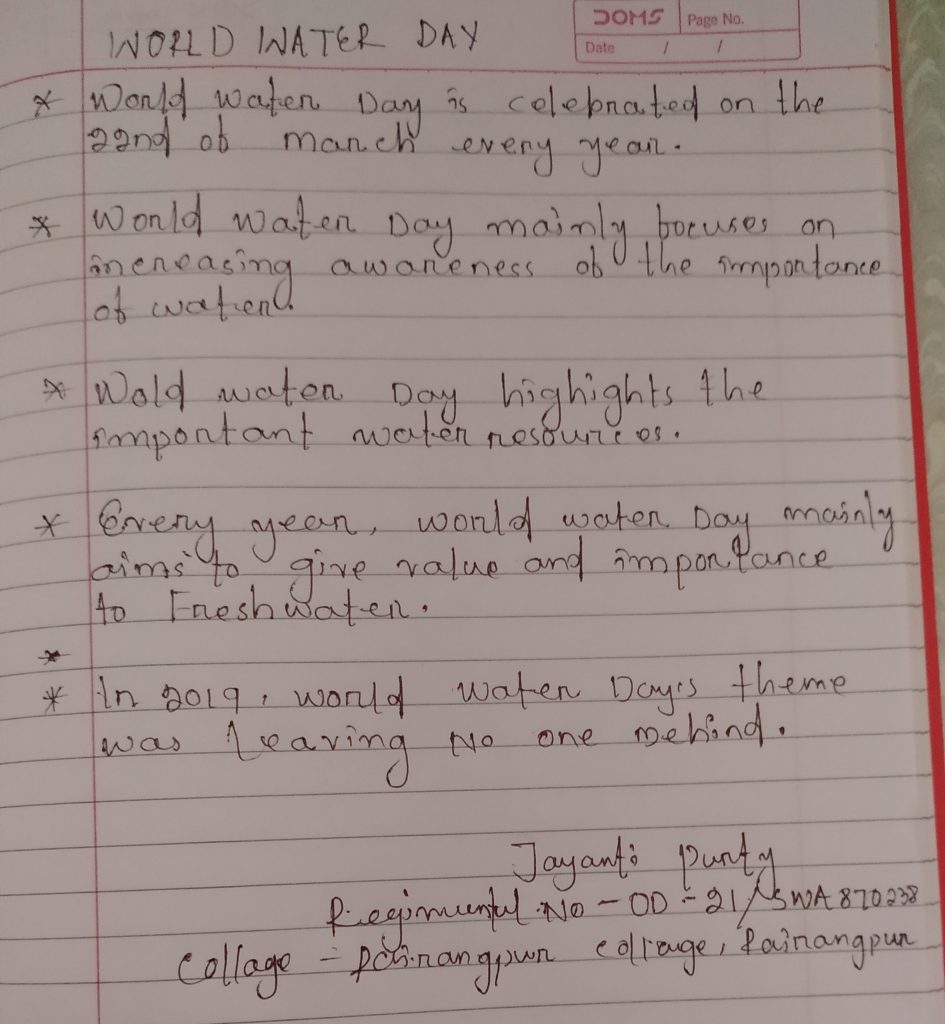 DOMS Page No.
Date / /
WORLD WATER DAY
* World water Day is celebrated on the
22nd of march every year.
* World water Day mainly focuses on
increasing awareness of the importance
of water.
* Wold water Day highights the
important water resources.
* Every year, world water Day mainly
aims to give value and importance
to Freshwater.
*
* In 2019, world water Day's theme
was leaving No one behind.
Jayanti Purty
Regimental No - OD - 21/SWA 870238
Collage - Rairangpur college, Rairangpur